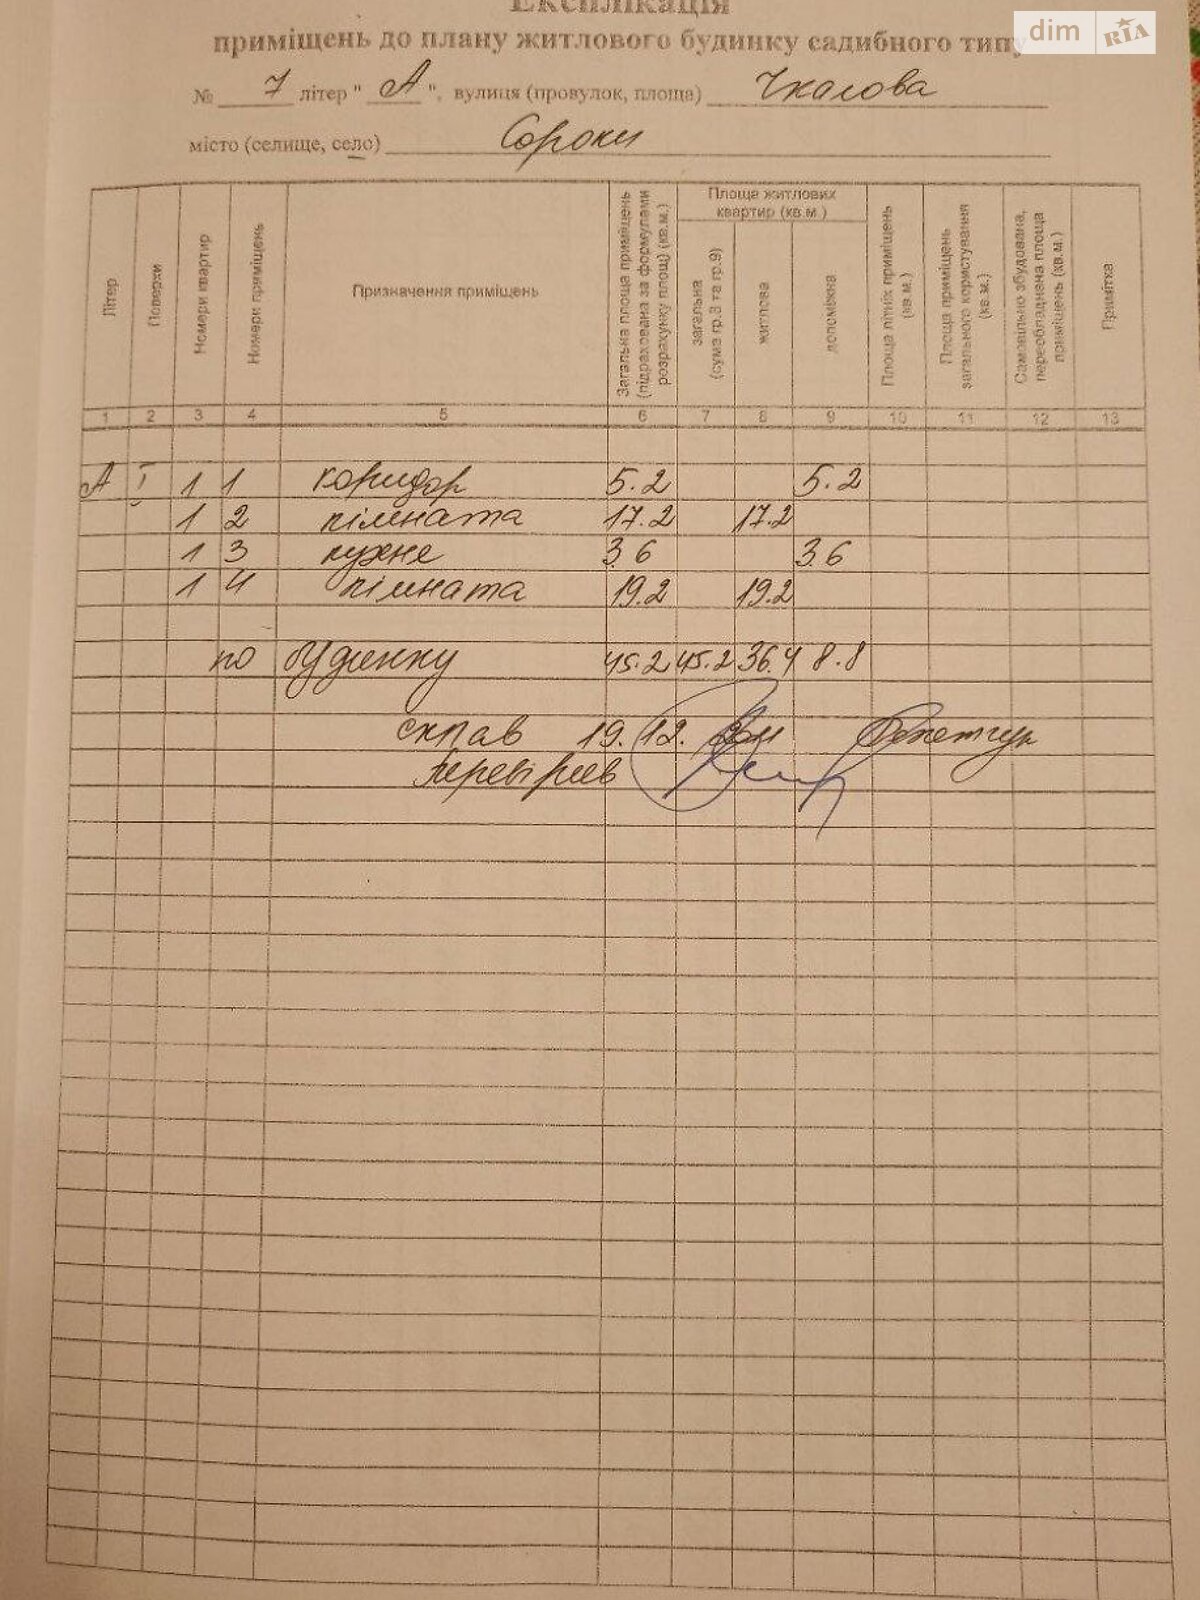 Експлікація
приміщень до плану житлового будинку садибного типу
dim RIA
№ 7 літер " А ", вулиця (провулок, площа) Чкалова
місто (селище, село) Сороки
Літер
Поверхи
Номери квартир
Номери приміщень
Призначення приміщень
Загальна площа приміщень (підрахована за формулами розрахунку площ) (кв.м.)
Площа житлових квартир (кв.м.)
загальна (сума гр.8 та гр.9)
житлова
допоміжна
Площа літніх приміщень (кв.м.)
Площа приміщень загального користування (кв.м.)
Самовільно збудована, переобладнана площа приміщень (кв.м.)
Примітка
1 2 3 4 5 6 7 8 9 10 11 12 13
А I 1 1 коридор 5.2 5.2
1 2 кімната 17.2 17.2
1 3 кухня 3.6 3.6
1 4 кімната 19.2 19.2
по будинку 45.2 45.2 36.4 8.8
склав 19.12.
Перевірив